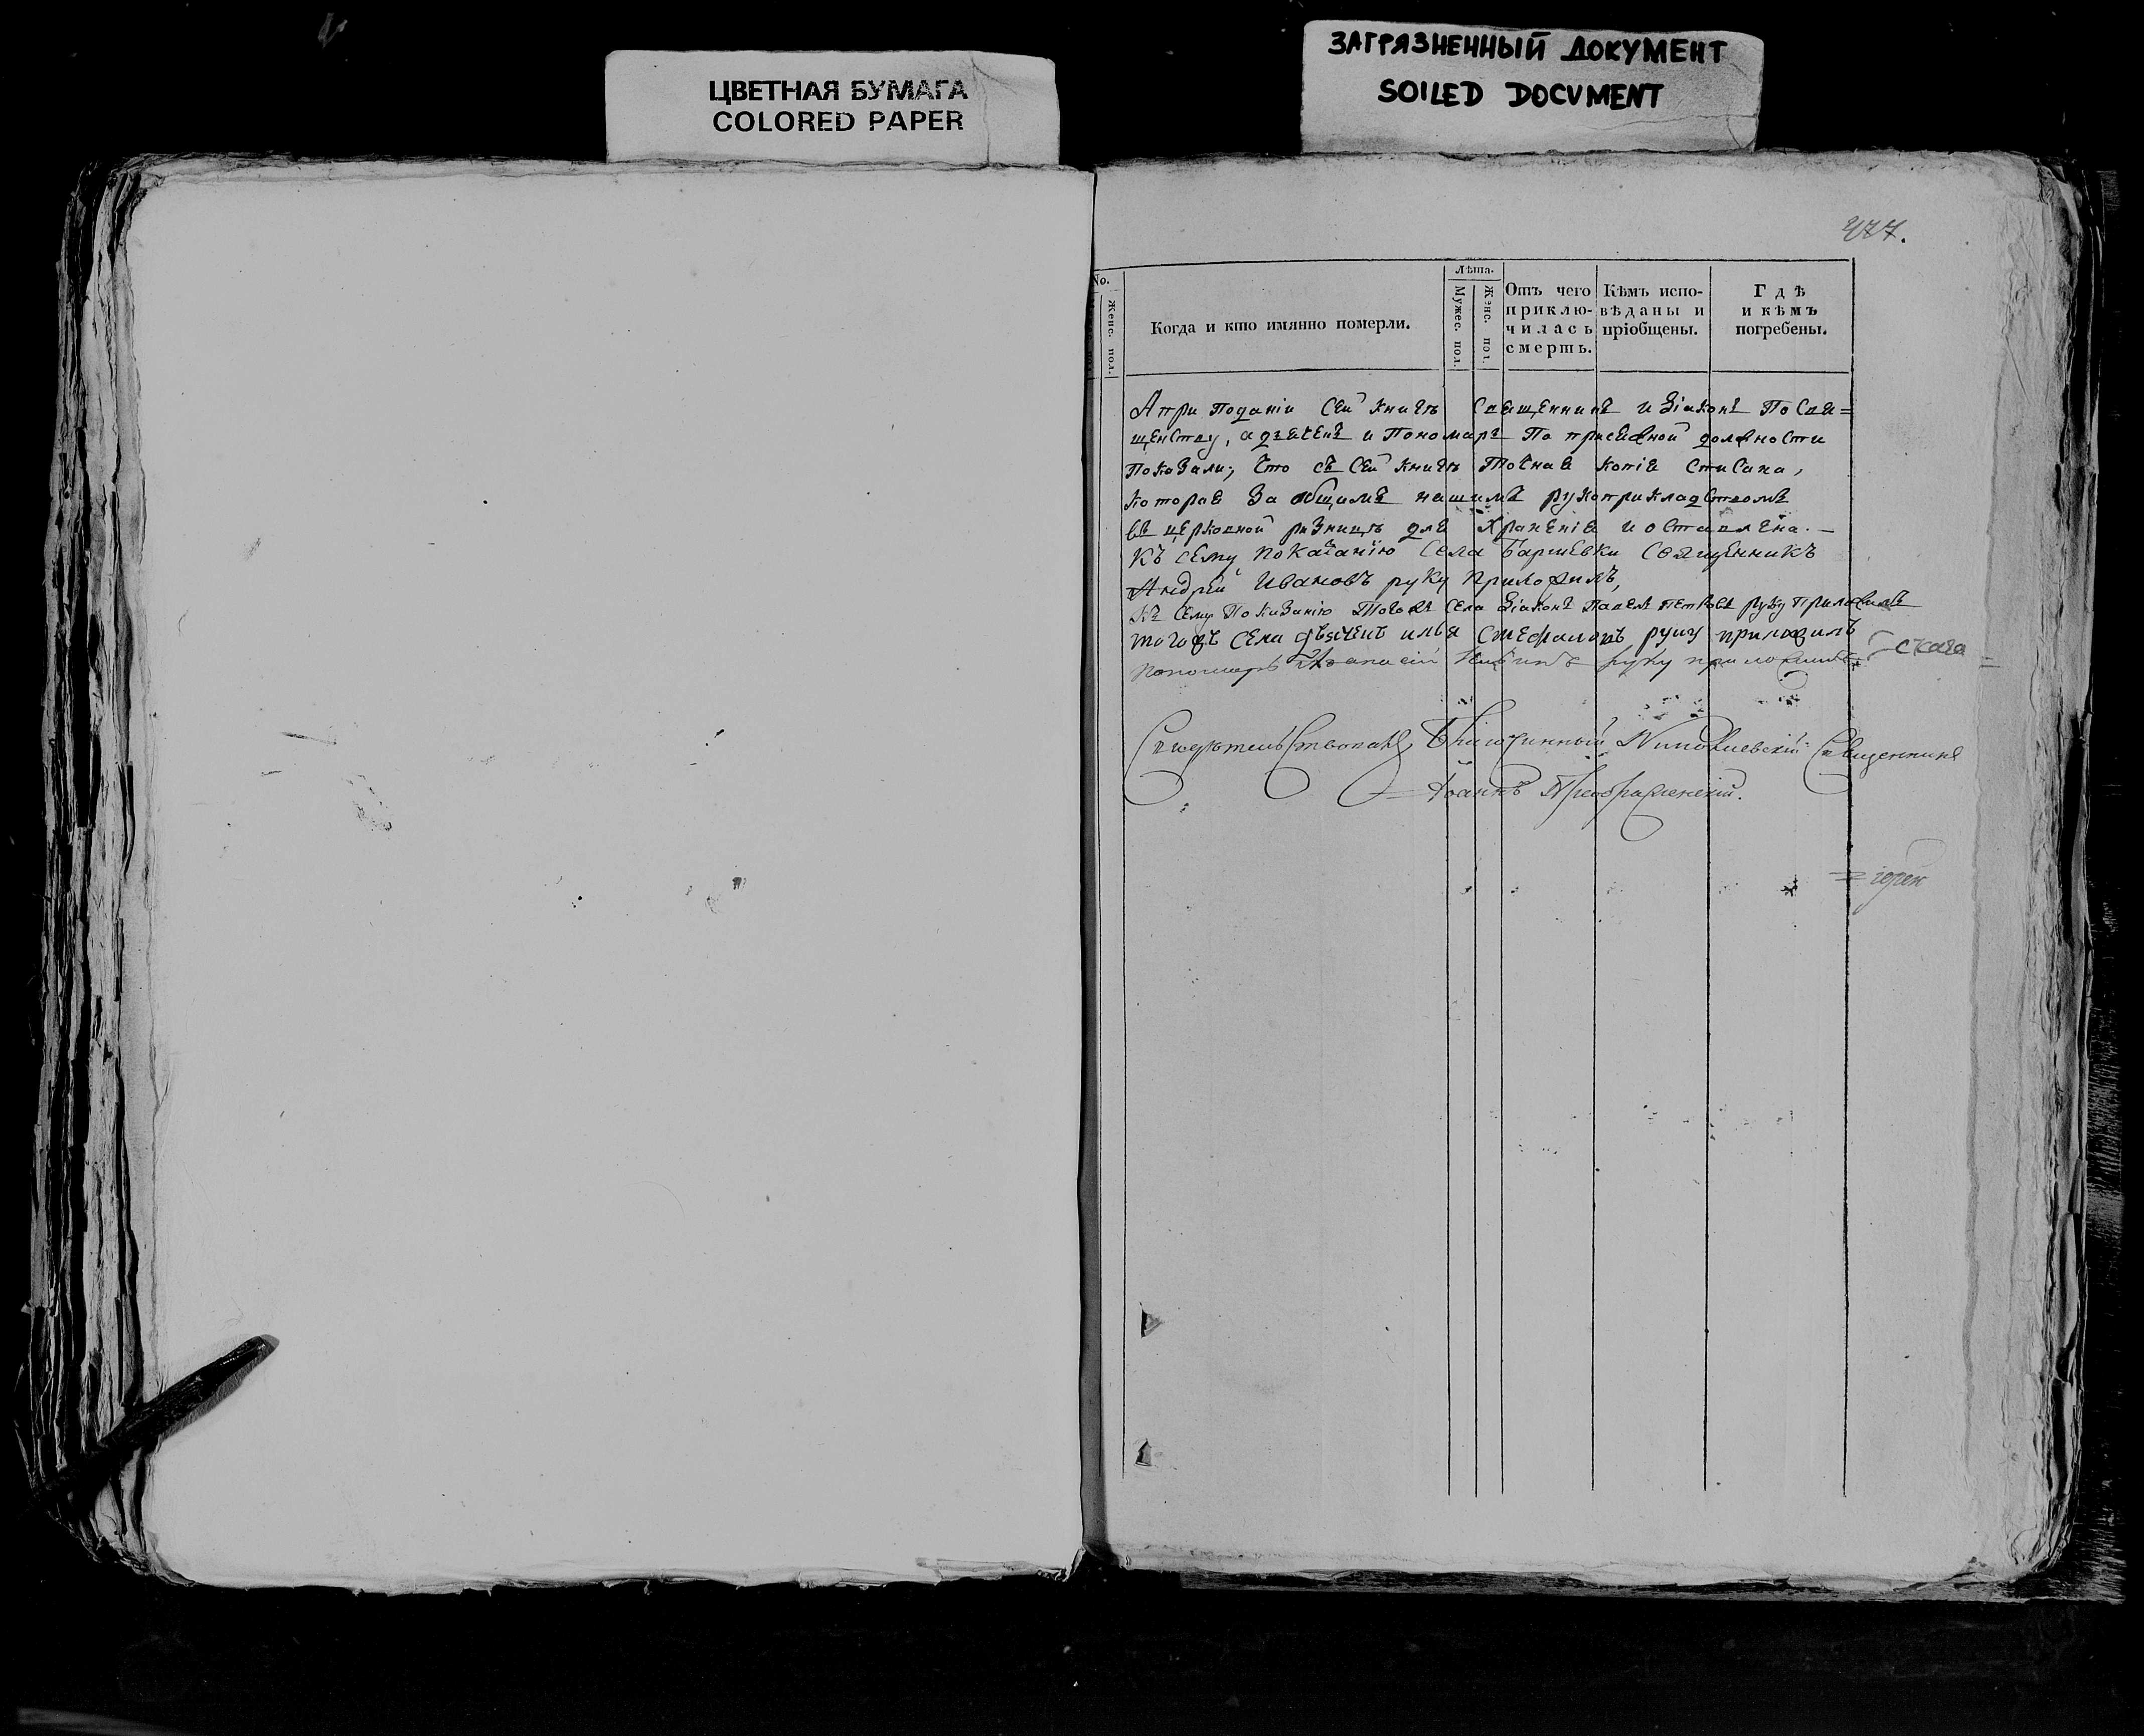 ЦВЕТНАЯ БУМАГА
COLORED PAPER
ЗАГРЯЗНЕННЫЙ ДОКУМЕНТ
SOILED DOCUMENT
477.
No.
Женс. пол.
Когда и кто имянно померли.
Лѣта.
Мужес. пол.
Женс. пол.
Отъ чего
приклю-
чилась
смерть.
Кѣмъ испо-
вѣданы и
пріобщены.
Гдѣ
и кѣмъ
погребены.
А при поданіи сей книги священникъ и діаконъ по свя=
щенству, а дьячекъ и пономарь по присяжной должности
показали, что съ сей книги точная копія списана,
которая за общимъ нашимъ рукоприкладствомъ
въ церковной ризницѣ для храненія и оставлена. —
Къ сему показанію села Барщевки священникъ
Андрей Ивановъ руку приложилъ,
Къ сему показанію тогожъ села діаконъ Павелъ Петровъ руку приложилъ
тогожъ села дьячекъ илья стефановъ руку приложилъ
пономарь Афанасій руку приложилъ
Свидѣтельствовалъ Благочинный Священникъ
Іоаннъ Преображенскій.